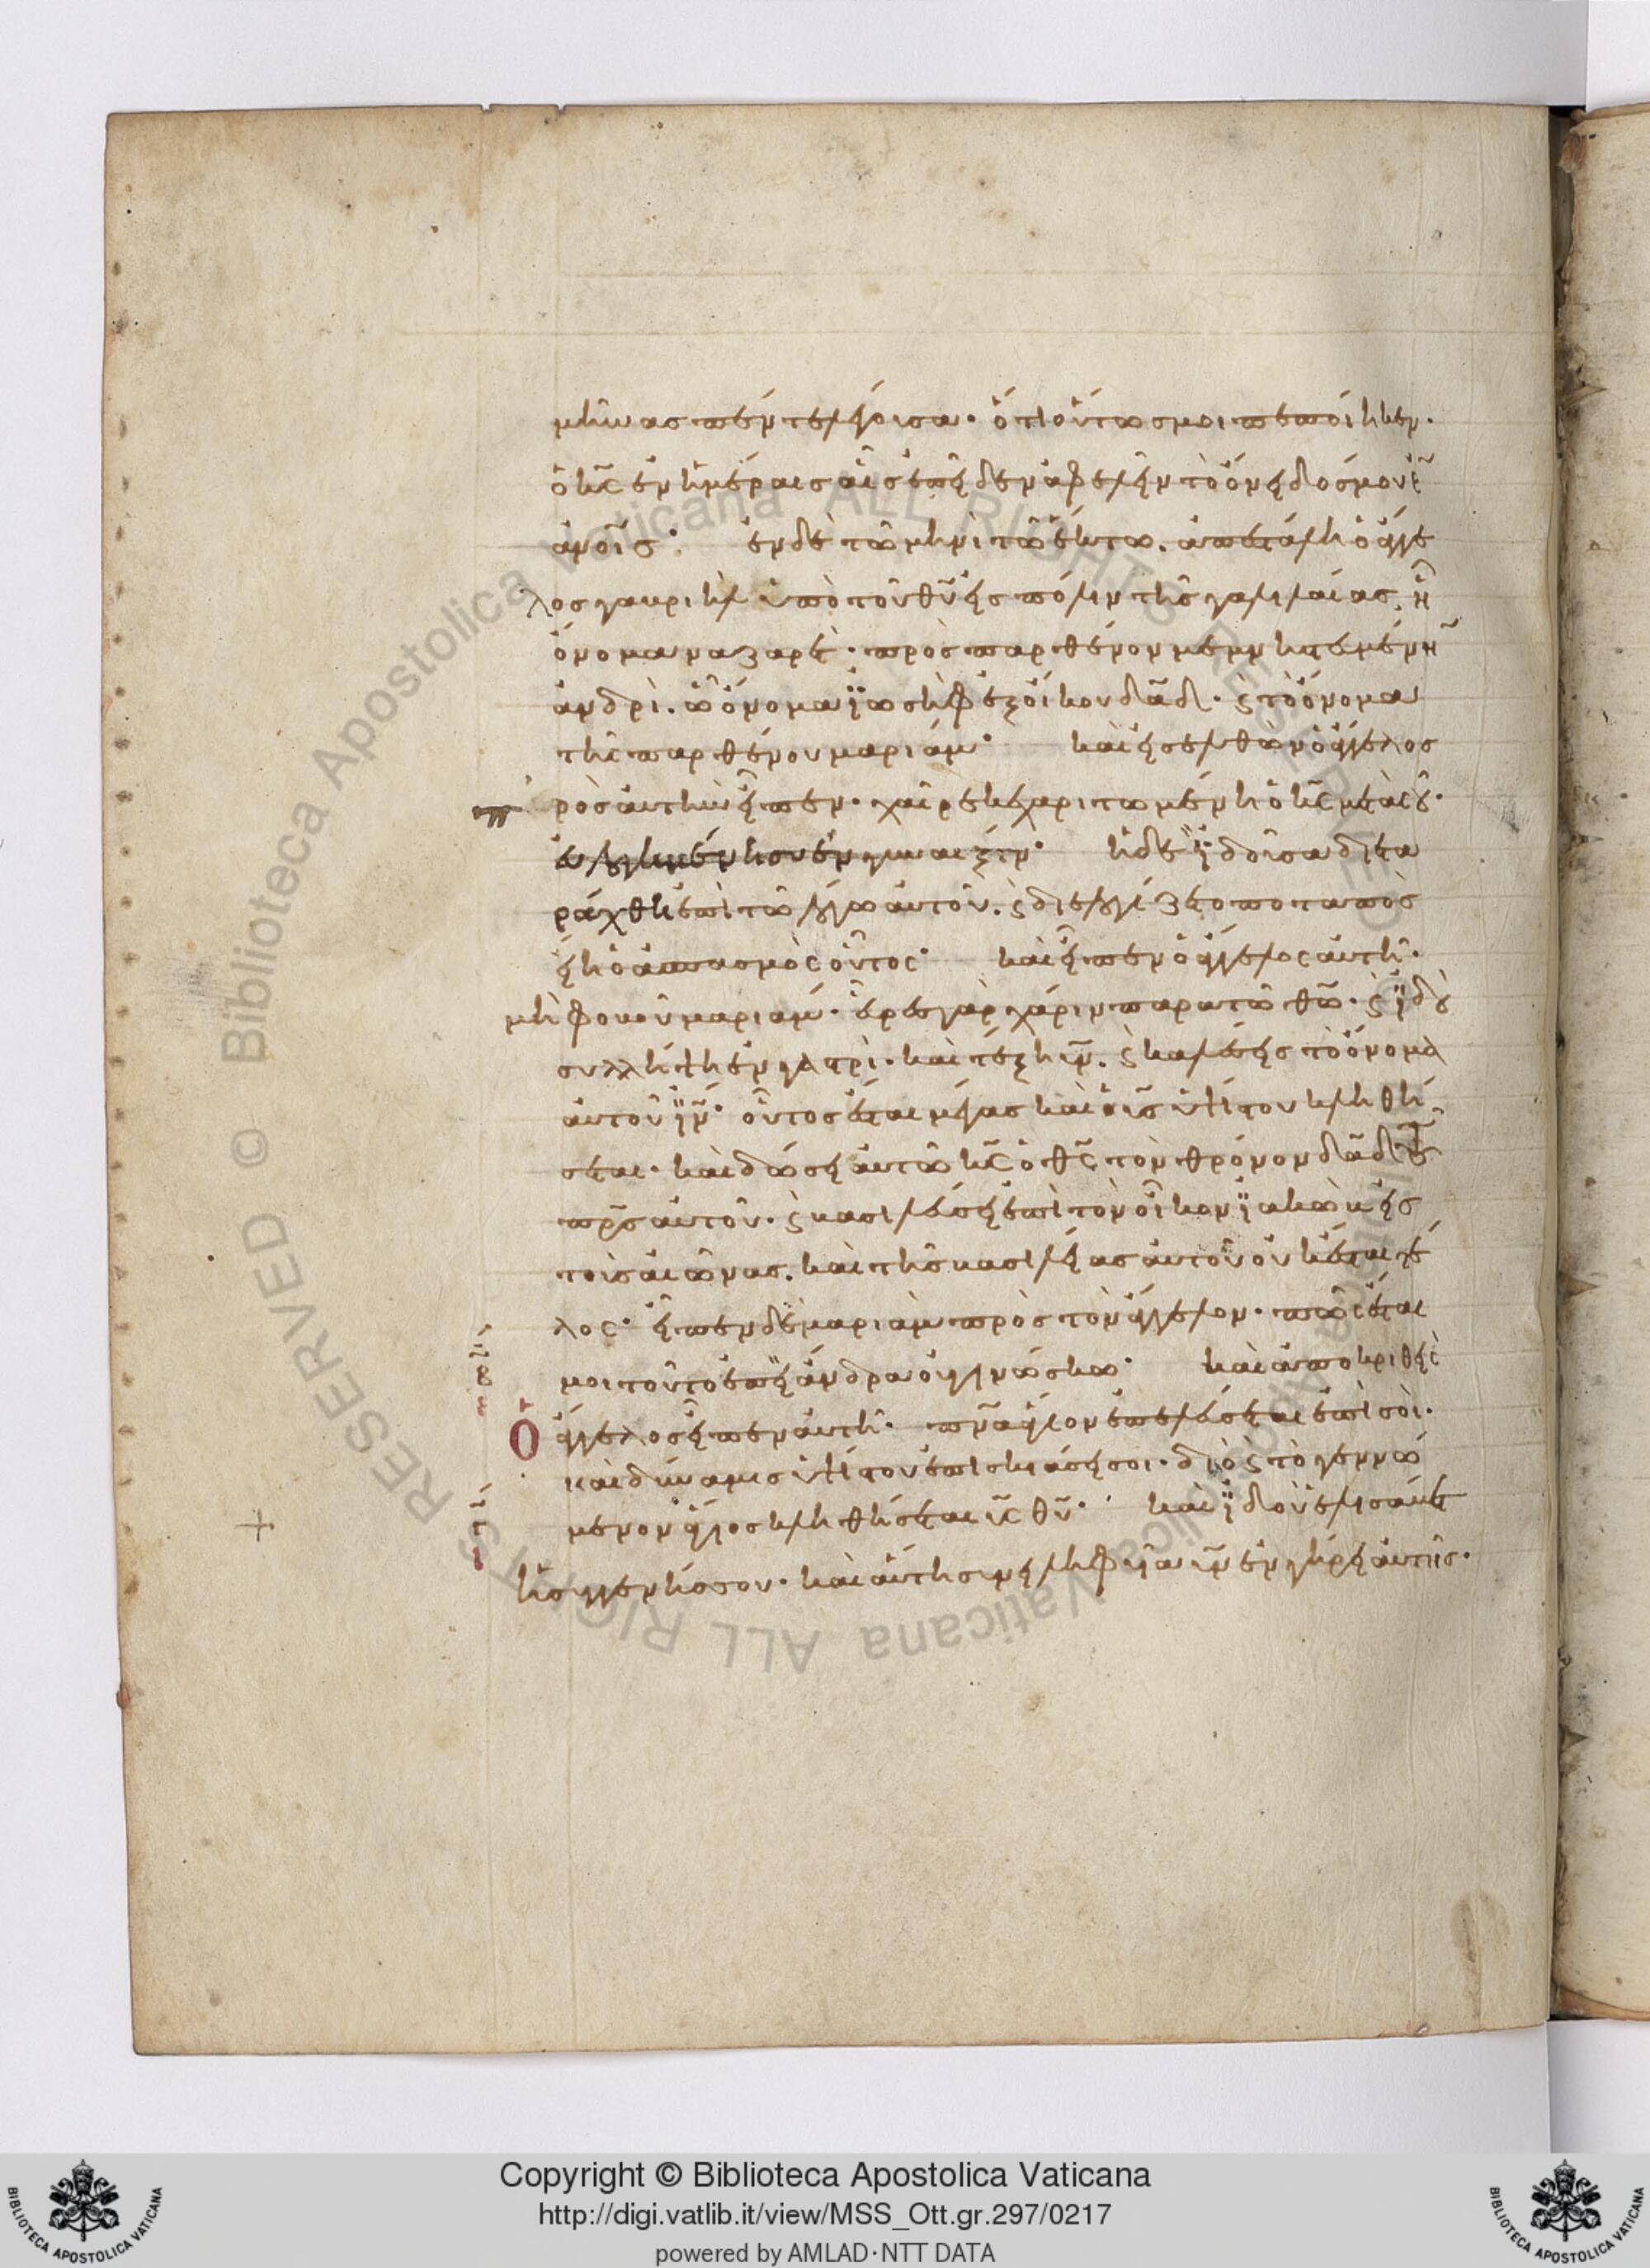 μῆνας πέντε λέγουσα· ὅτι οὕτως μοι πεποίηκεν·
ὁ κ̅ς̅ ἐν ἡμέραις αἷς ἐπεῖδεν ἀφελεῖν τὸ ὄνειδός μου ἐν
ἀνοῖς· ἐν δὲ τῶ μηνὶ τῶ ἕκτω. ἀπεστάλη ὁ ἄγγε
λος γαυριὴλ ὑπὸ τοῦ θ̅υ̅ εἰς πόλιν τῆς γαλιλαίας. ἧ
ὄνομα ναζαρέτ· πρὸς παρθένον μεμνηστεμένην
ἀνδρὶ. ὧ ὄνομα ϊωσὴφ ἐξ οἴκου δ̅α̅δ̅· ϗ τὸ ὄνομα
τῆς παρθένου μαριάμ· καὶ εἰσελθὼν ὁ ἄγγελος
πρὸς αὐτὴν εἶπεν. χαῖρε κεχαριτωμένη ὁ κ̅ς̅ μετὰ σοῦ·
εὐλογημένη σὺ ἐν γυναιξίν· ἡ δὲ ϊδοῦσα διετα
ράχθη ἐπὶ τῶ λόγω αὐτοῦ. ϗ διελογίζετο ποταπὸς
εἴη ὁ ἀσπασμὸς οὗτος· καὶ εἶπεν ὁ ἄγγελος αὐτῆ·
μὴ φοβοῦ μαριάμ· εὗρες γὰρ χάριν παρα τῶ θ̅ω̅· ϗ ϊδοὺ
συλλήψη ἐν γαστρὶ· καὶ τέξη υ̅ν̅. ϗ καλέσεις τὸ ὄνομα
αὐτοῦ ι̅ν̅· οὗτος ἔσται μέγας καὶ υ̅ς̅ ὑψίστου κληθή
σεται· καὶ δώσει αὐτῶ κ̅ς̅ ὁ θ̅ς̅ τὸν θρόνον δ̅α̅δ̅ τοῦ
π̅ρ̅ς̅ αὐτοῦ· ϗ βασιλεύσει ἐπὶ τὸν οἶκον ϊακὼβ εἰς
τοὺς αἰῶνας. καὶ τῆς βασιλείας αὐτοῦ οὐκ ἔσται τέ
λος· εἶπεν δὲ μαριὰμ πρὸς τὸν ἄγγελον· πῶς ἔσται
μοι τοῦτο ἐπεὶ ἄνδρα οὐ γινώσκω· καὶ ἀποκριθεὶς
Ὁ ἄγγελος εἶπεν αὐτῆ· π̅ν̅α̅ ἅγιον ἐπελεύσεται ἐπὶ σοὶ·
καὶ δύναμις ὑψίστου ἐπισκιάσει σοι· διὸ ϗ τὸ γεννώ
μενον ἅγιος κληθήσεται υ̅ς̅ θ̅υ̅· καὶ ϊδοὺ ἐλισάβετ
ἡ συγγενής σου· καὶ αὐτὴ συνειληφυῖα υ̅ν̅ ἐν γήρει αὐτῆς·
Copyright © Biblioteca Apostolica Vaticana
http://digi.vatlib.it/view/MSS_Ott.gr.297/0217
powered by AMLAD·NTT DATA